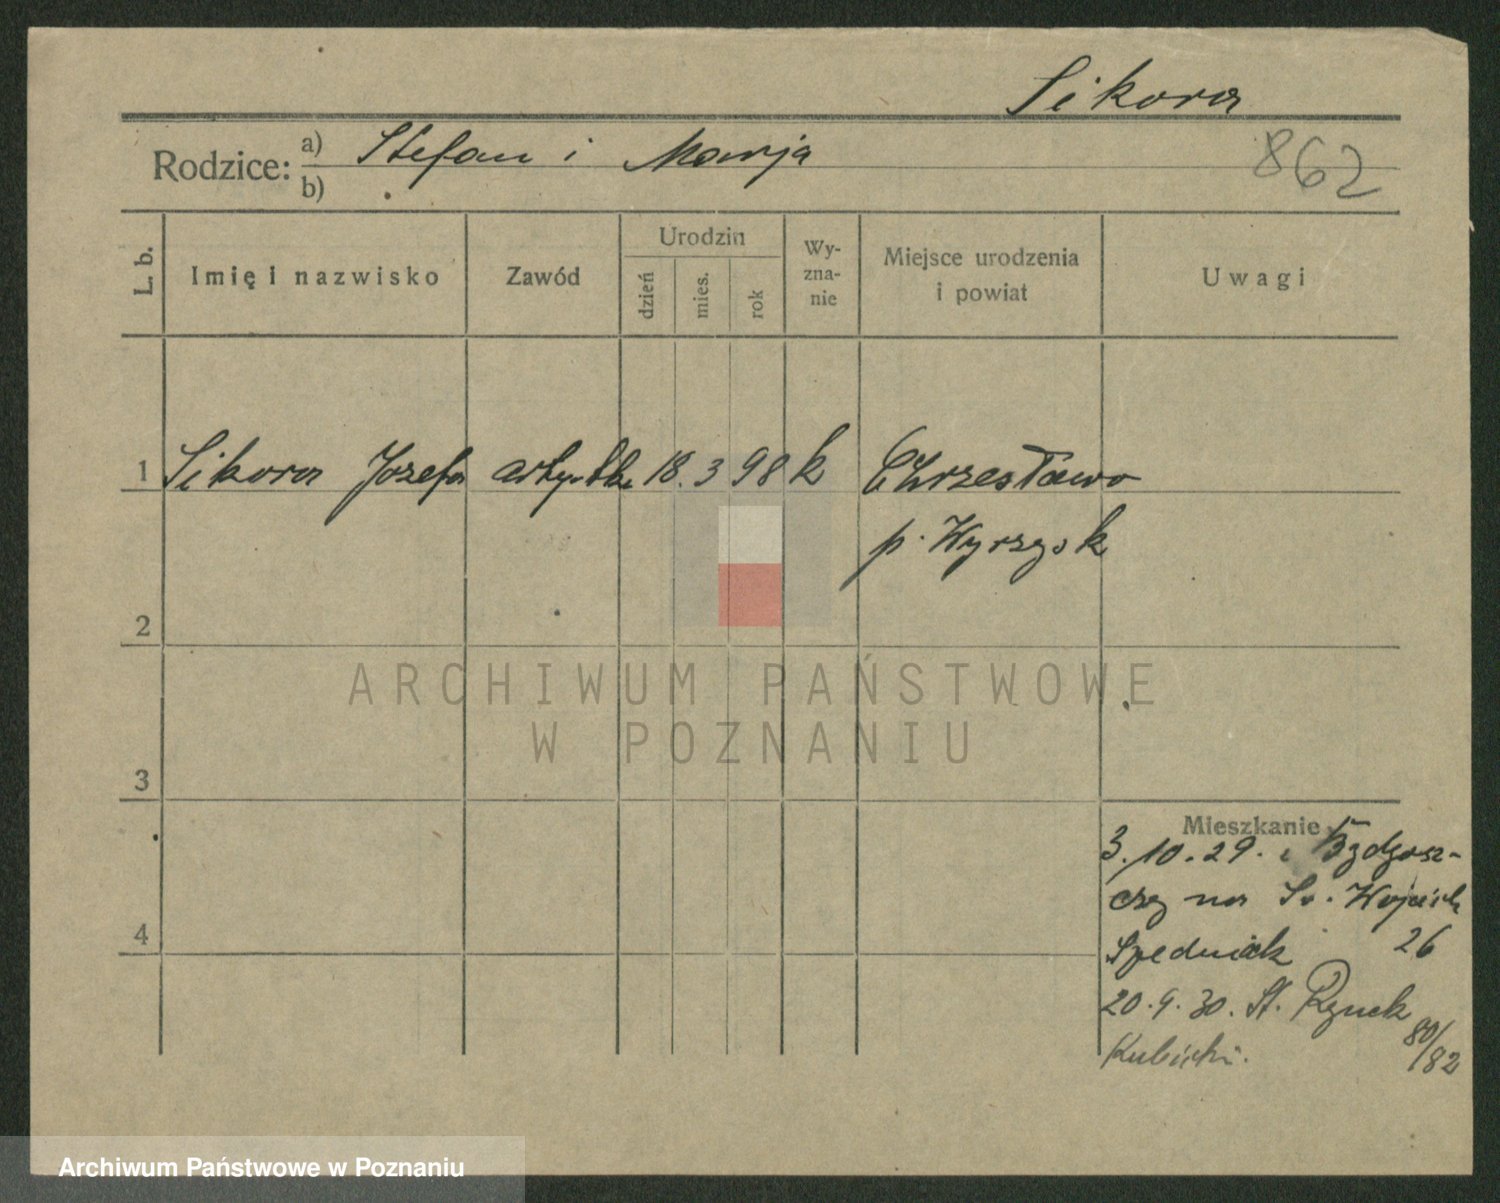 Sikora
Rodzice: a) Stefan i Marja
b)
862
L. b. Imię i nazwisko Zawód Urodzin dzień mies. rok Wy-zna-nie Miejsce urodzenia i powiat Uwagi
1 Sikora Józefa artystka 18. 3 98 k Chrzesławo
p. Wyrzysk
2
ARCHIWUM PAŃSTWOWE
W POZNANIU
3
Mieszkanie
3.10.29. Bydgosz-
czy na Św. Wojciech
4
26
20.9.30. St. Rynek
80/82
Kubicki.
Archiwum Państwowe w Poznaniu